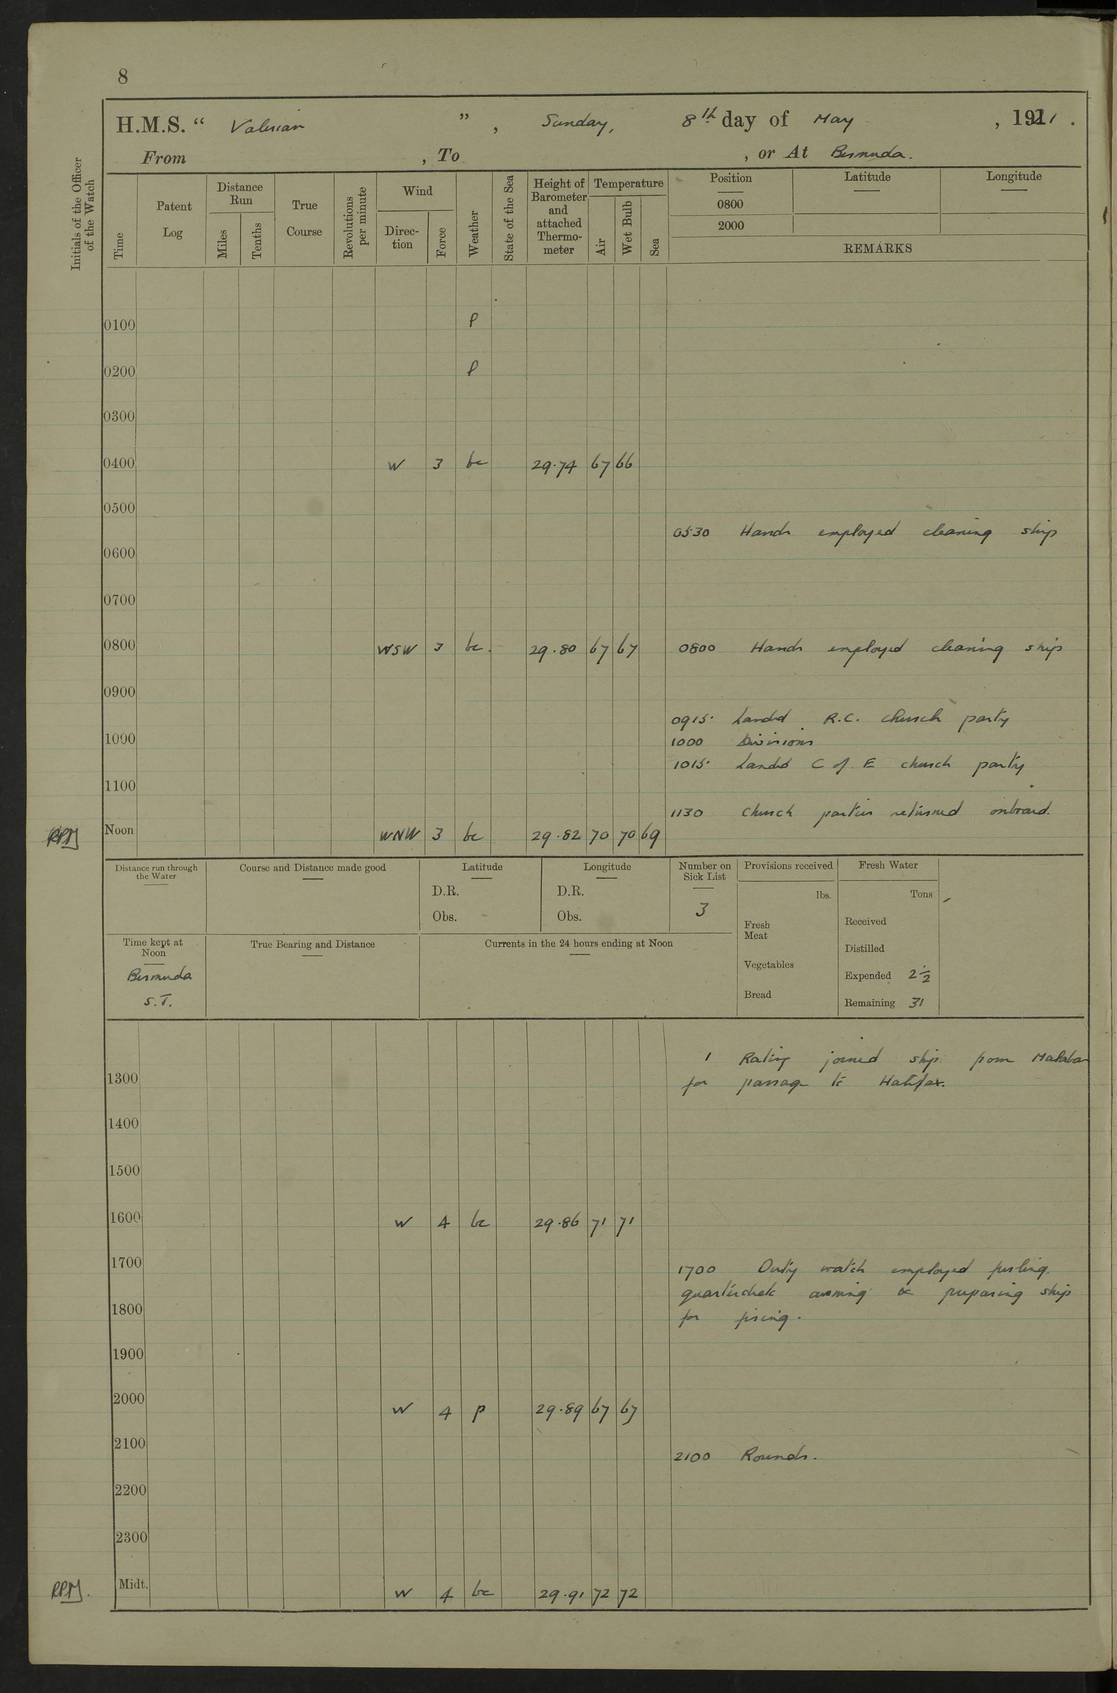 8
H.M.S. “ Valerian ” , Sunday, 8th day of May , 1921 .
From , To , or At Bermuda.
Initials of the Officer of the Watch
Time
Patent Log
Distance Run
Miles
Tenths
True Course
Revolutions per minute
Wind
Direc-tion
Force
Weather
State of the Sea
Height of Barometer and attached Thermo-meter
Temperature
Air
Wet Bulb
Sea
Position
Latitude
Longitude
0800
2000
REMARKS
0100 P
0200 P
0300
0400 W 3 bc 29.74 67 66
0500
0530 Hands employed cleaning ship
0600
0700
0800 WSW 3 bc. 29.80 67 67 0800 Hands employed cleaning ship
0900
0915. Landed R.C. church party
1000 1000 Divisions
1015. Landed C of E church party
1100
1130 Church parties returned onboard.
RPM Noon WNW 3 bc 29.82 70 70 69
Distance run through the Water
Course and Distance made good
Latitude
D.R.
Obs.
Longitude
D.R.
Obs.
Number on Sick List
3
Provisions received
lbs.
Fresh Meat
Vegetables
Bread
Fresh Water
Tons
Received
Distilled
Expended 2½
Remaining 31
Time kept at Noon
Bermuda
S.T.
True Bearing and Distance
Currents in the 24 hours ending at Noon
1 Rating joined ship from Malabar
1300 for passage to Halifax.
1400
1500
1600 W 4 bc 29.86 71 71
1700 1700 Duty watch employed furling
quarterdeck awning & preparing ship
1800 for firing.
1900
2000 W 4 p 29.89 67 67
2100 2100 Rounds.
2200
2300
RPM. Midt. W 4 bc 29.91 72 72